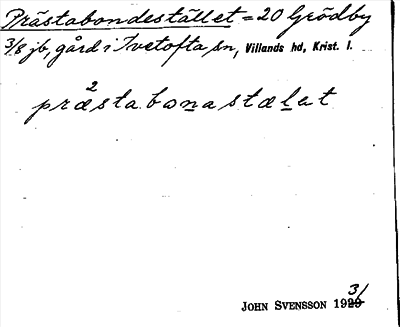 Prästabondestället = 20 Grödby
3/8 jb, gård i Ivetofta sn, Villands hd, Krist. l.
2
præsta bonastælat
JOHN SVENSSON 1929 31